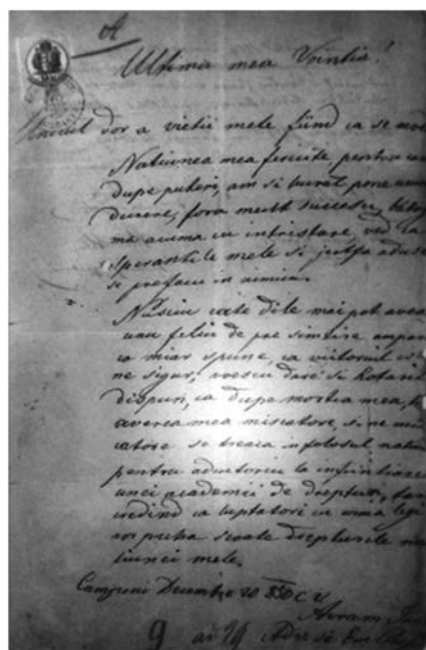 Ultima mea Vointia!
Unicul dor a vietii mele fiind ca se
Natiunea mea fericite, pentru
dupe puteri, am si lucrat pone
durere, fora mult succesu,
ma acuma cu intristare ved
sperantile mele si jertfa aduse
se prefacu in nimica.
Nusciu cate dile mai pot avea
unu feliu de pre simtire
ca miar spune, ca viitorul
ne sigur, voescu dare si hotarit
dispun, ca dupa mortea mea,
averea mea miscatore, si ne
catore se treaca in folosul
pentru adiutoriu la infiintiare
unei academii de drepturi,
credind ca luptatori cu arma
vor putea scoate drepturile
tiunei mele.
Campeni Decembre 20 850
Avram
9